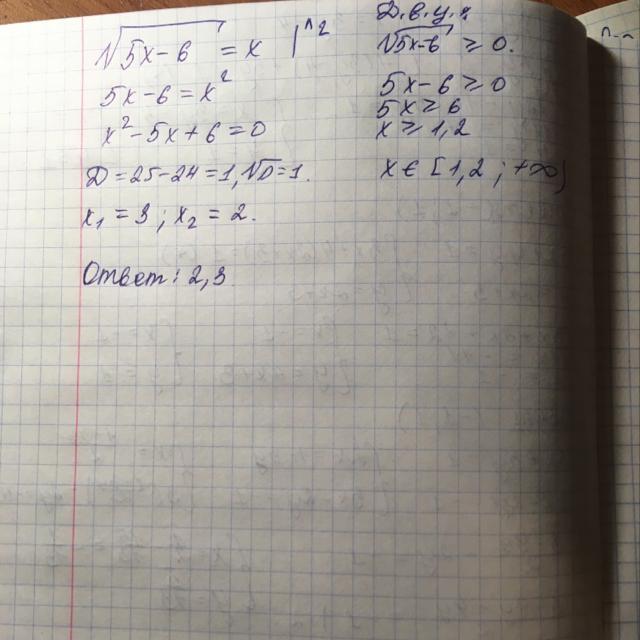 √5x-6 = x |^2
5x-6 = x²
x²-5x+6=0
D=25-24=1, √D=1.
x₁ = 3; x₂ = 2.
Ответ: 2,3
Д.в.у.:
√5x-6 ≥ 0.
5x-6 ≥ 0
5x ≥ 6
x ≥ 1,2
x ∈ [1,2; +∞)